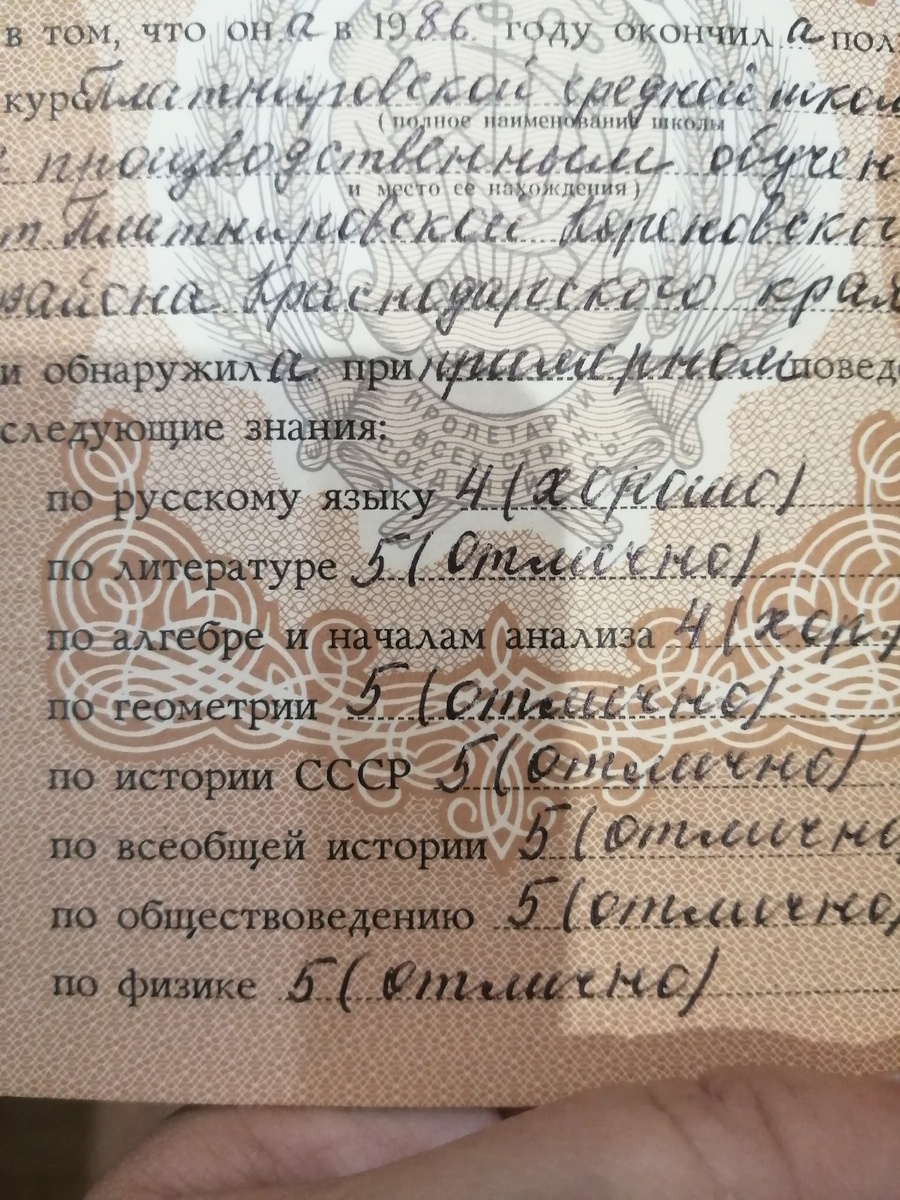 в том, что она в 1986 году окончила пол
курс Платнировской средней школ
(полное наименование школы
с производственным обучен
и место ее нахождения)
т. Платнировской Кореновског
района Краснодарского края
и обнаружила при примерном повед
следующие знания:
ПРОЛЕТАРИИ
ВСЕХ СТРАН,
СОЕДИ
по русскому языку 4 (хорошо)
по литературе 5 (отлично)
по алгебре и началам анализа 4 (хор.)
по геометрии 5 (отлично)
по истории СССР 5 (отлично)
по всеобщей истории 5 (отлично)
по обществоведению 5 (отлично)
по физике 5 (отлично)